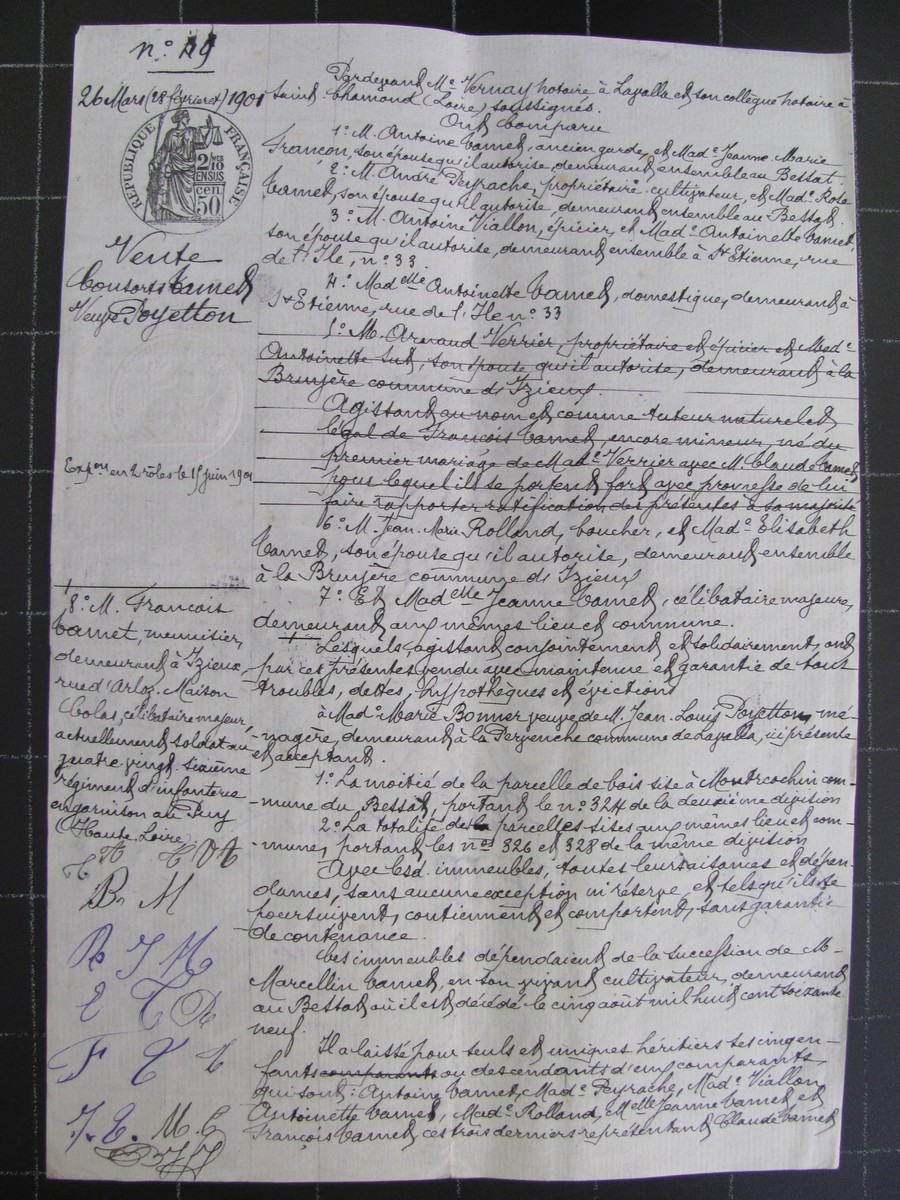 n.° 49
26 Mars (28 février et) 1901
RÉPUBLIQUE FRANÇAISE
2/10
EN SUS
cen.
50
Vente
Consorts Camet
Veuve Poyetton
Expon en 2 rôles le 15 juin 1901
8.° M. François
Camet, menuisier,
demeurant à Izieux,
rue d'Arloz. Maison
Colas, célibataire majeur,
actuellement soldat au
quatre vingt. sixième
régiment d'infanterie
en garnison au Puy
(Haute Loire)
B. M
Pardevant Me Vernay notaire à Lavalla et son collègue notaire à
Saint Chamond (Loire) soussignés.
Ont Comparu
1.° M. Antoine Camet, ancien garde, et Made Jeanne Marie
Françon, son épouse qu'il autorise, demeurant ensemble au Bessat.
2.° M. André Peyrache, propriétaire cultivateur, et Made Rose
Camet, son épouse qu'il autorise, demeurant ensemble au Bessat.
3.° M. Antoine Viallon, épicier, et Made Antoinette Camet,
son épouse qu'il autorise, demeurant ensemble à St Etienne, rue
de l'Ile, n.° 33.
4.° Madelle Antoinette Camet, domestique, demeurant à
St Etienne, rue de l'Ile n.° 33
5.° M. Arnaud Verrier, propriétaire et épicier et Made
Antoinette son épouse qu'il autorise, demeurant à la
Bruyère commune d'Izieux.
Agissant au nom et comme tuteur naturel et
légal de François Camet, encore mineur, né du
premier mariage de Made Verrier avec M. Claude Camet,
pour lequel ils se portent fort avec promesse de lui
faire rapporter ratification des présentes à sa majorité
6.° M. Jean. Marie Rolland, boucher, et Made Elisabeth
Camet, son épouse qu'il autorise, demeurant ensemble
à la Bruyère commune d'Izieux
7.° Et Madelle Jeanne Camet, célibataire majeure,
demeurant aux mêmes lieu et commune.
Lesquels agissant conjointement et solidairement, ont
par ces présentes vendu avec maintenue et garantie de tous
troubles, dettes, hypothèques et évictions
à Made Marie Bonner veuve de M. Jean. Louis Poyetton, mé-
nagère, demeurant à la Pervenche commune de Lavalla, ici présente
et acceptant.
1.° La moitié de la parcelle de bois site à Montcochin com-
mune du Bessat, portant le n.° 324 de la deuxième division
2.° La totalité de parcelles sites aux mêmes lieu et com-
mune, portant les nos 326 et 328 de la même division
Avec lesd. immeubles, toutes leurs aisances et dépen-
dances, sans aucune exception ni réserve, et tels qu'ils se
poursuivent, contiennent et comportent, sans garantie
de contenance.
Ces immeubles dépendaient de la succession de M.
Marcellin Camet, en son vivant cultivateur, demeurant
au Bessat où il est décédé le cinq août mil huit cent soixante
neuf.
Il a laissé pour seuls et uniques héritiers ses cinq en-
fants comparants ou descendants d'eux comparants,
qui sont : Antoine Camet, Made Peyrache, Made Viallon,
Antoinette Camet, Made Rolland, Melle Jeanne Camet et
François Camet, ces trois derniers représentant Claude Camet